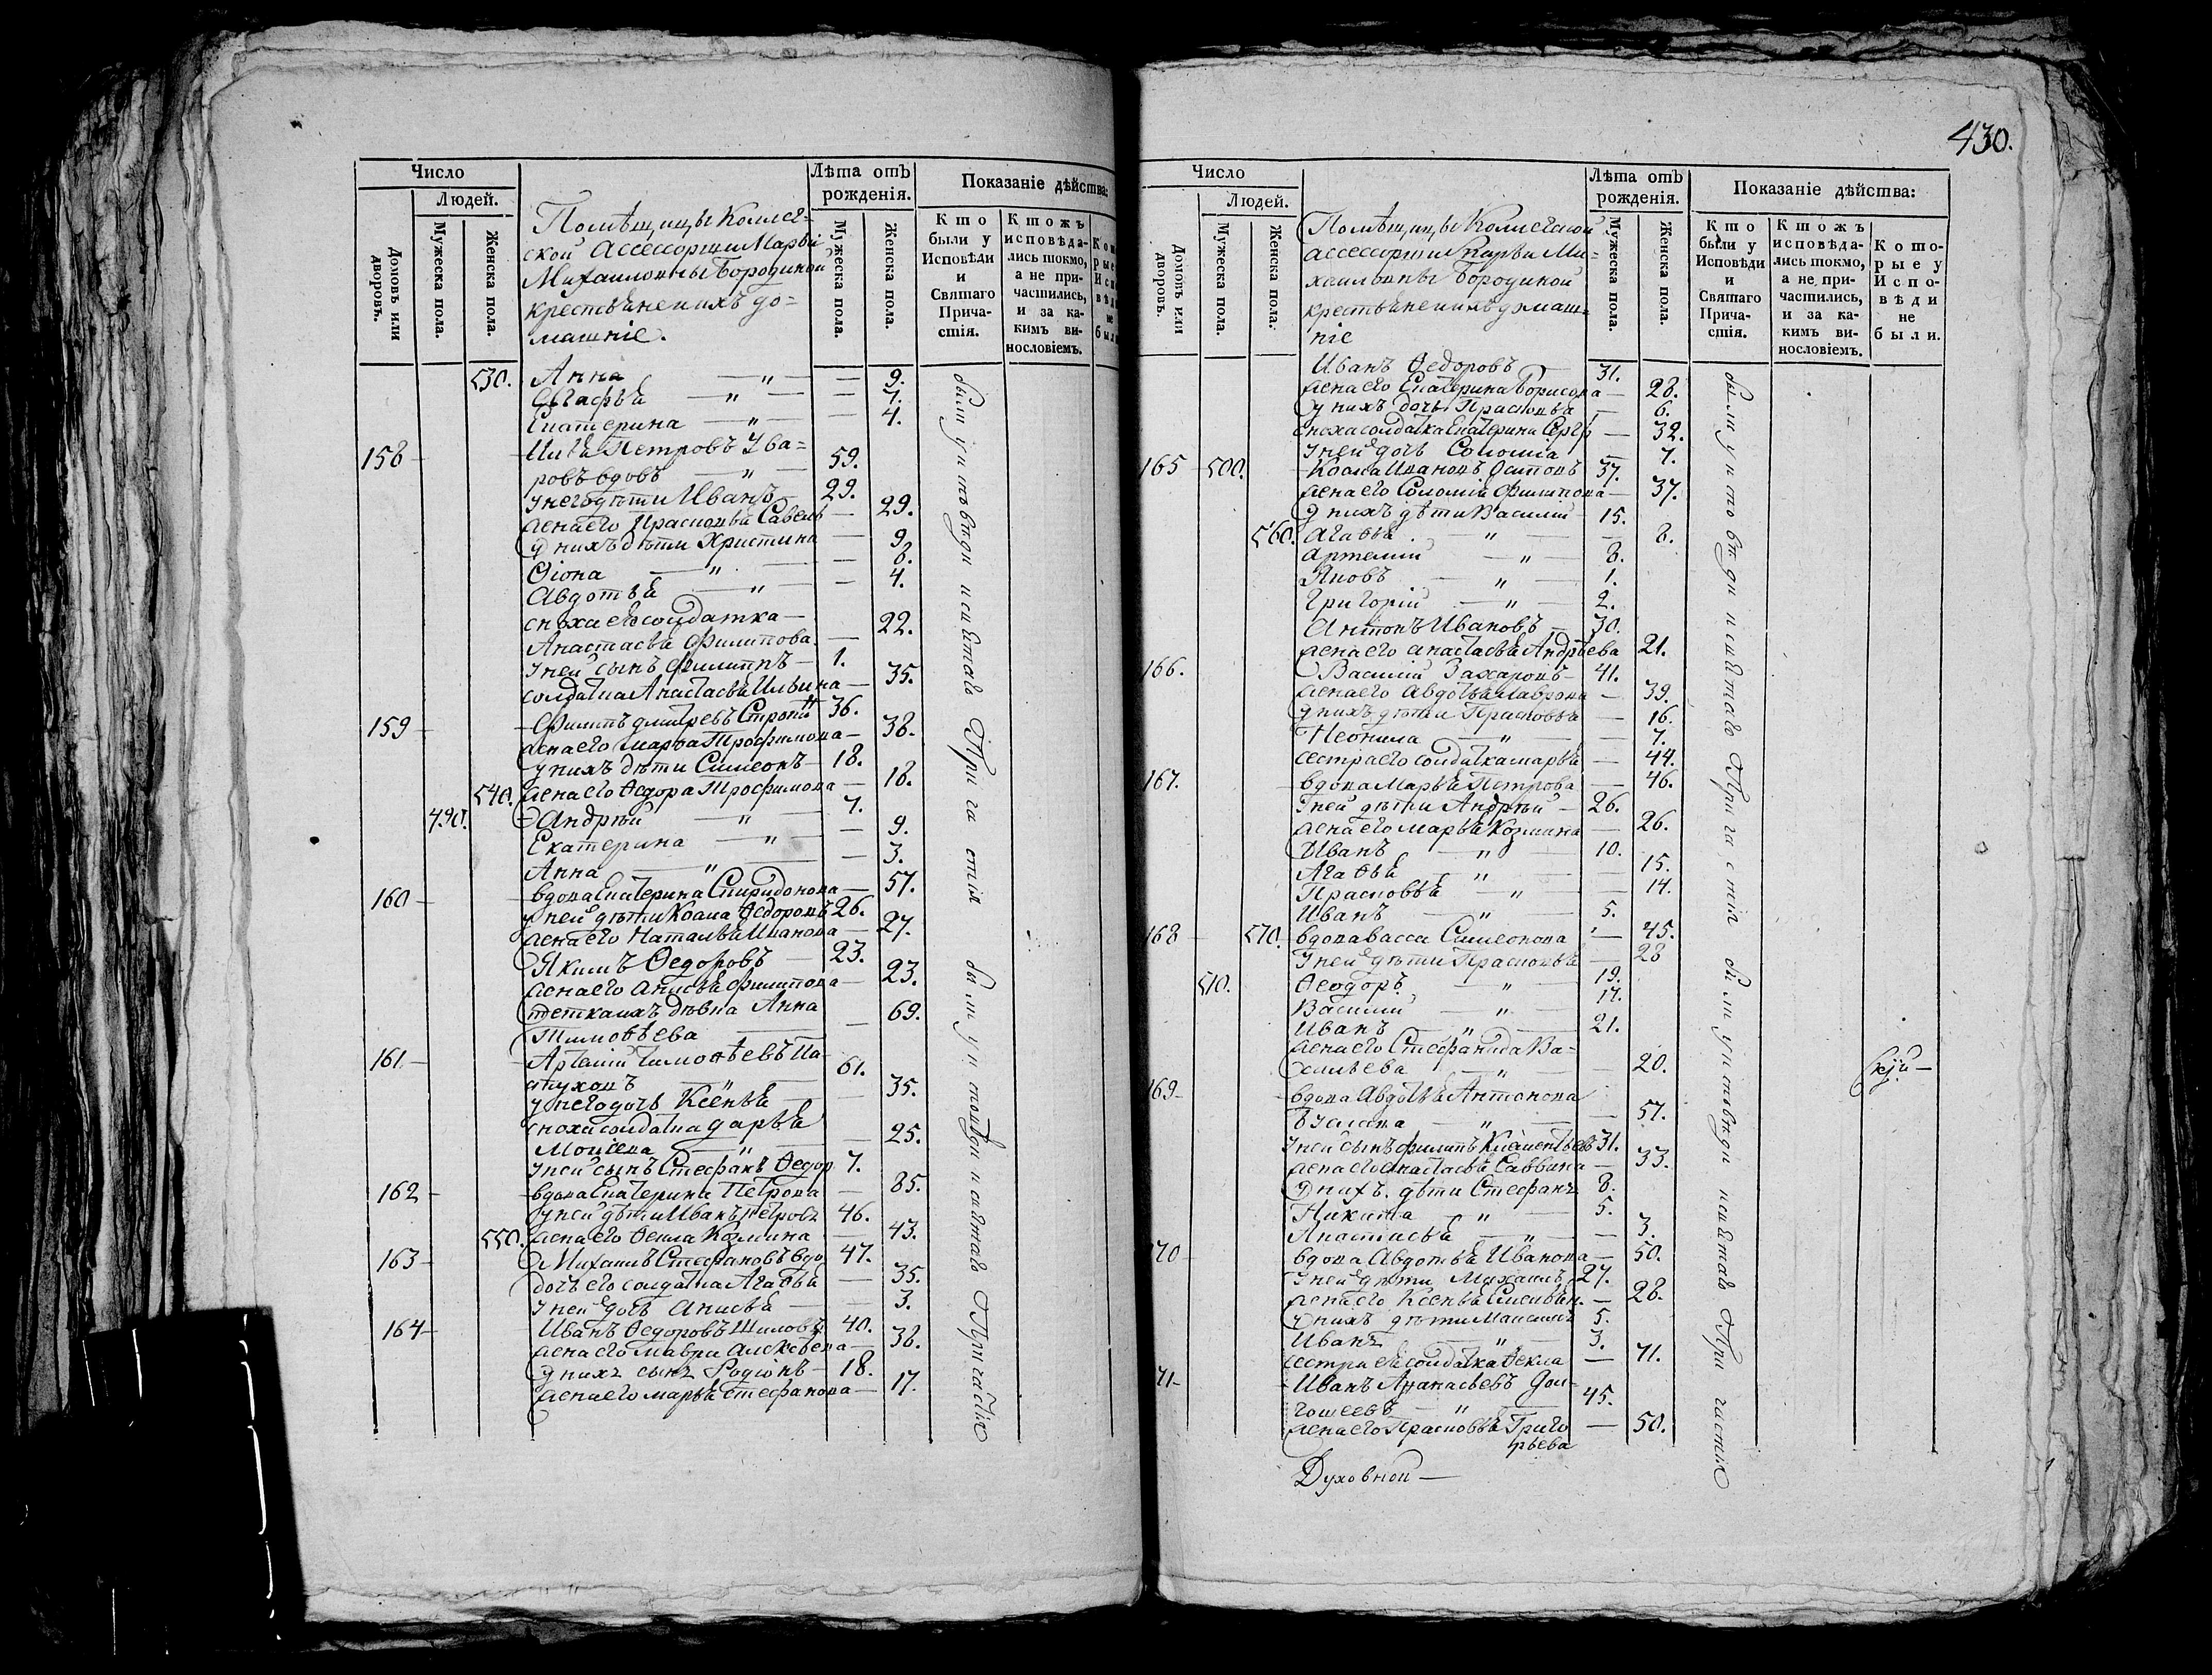 430.
Число
Людей.
Домовъ или дворовъ.
Мужеска пола.
Женска пола.
Лѣта отъ рожденія.
Мужеска пола.
Женска пола.
Показаніе дѣйства:
Кто были у Исповѣди и Святаго Причастія.
Ктожъ исповѣдались токмо, а не причастились, и за какимъ винословіемъ.
Помѣщицы Коллег=
ской Ассессорши Марьи
Михаиловны Бородиной
крестьяне ихъ до=
машніе.
530. Анна — " — — 9.
Агафья — " — — 7.
Екатерина — " — — 4.
158 Илья Петровъ Ува=
ровъ вдовъ — " — 59.
у него дѣти Иванъ — 29.
жена его Прасковья Савель — 29.
у нихъ дѣти Христина — 9.
Ѳіона — " — — 8.
Авдотья — " — — 4.
сноха его солдатка —
Анастасья Филипова — 22.
у ней сынъ Филиппъ — 1.
солдатка Анастасья Ильина — 35.
159 Филипъ Дмитревъ 36.
жена его Марѳа Трофимова — 38.
у нихъ дѣти Симеонъ — 18.
540. жена его Ѳедора Трофимова — 18.
490. Андрѣй — " — 7.
Екатерина — " — — 9.
Анна — " — — 3.
160 вдова Екатерина Спиридонова — 57.
у ней дѣти Козма Ѳедоровъ 26.
жена его Наталья Иванова — 27.
Якимъ Ѳедоровъ — 23.
жена его Анисья Филипова — 23.
тетка ихъ дѣвка Анна
Тимоѳѣева — 69.
161 Артемій Тимоѳѣевъ
61.
у него дочь Ксенья — 35.
сноха солдатка Дарья
Моисева — " — — 25.
у ней сынъ Стефанъ Ѳедор 7.
162 вдова Екатерина Петрова — 85.
у ней дѣти Иванъ Петровъ 46.
550. жена его Ѳекла Козмина — 43.
163 Михаилъ Стефановъ вдов 47.
дочь его солдатка Агаѳья — 35.
у ней дочь Анисья — 3.
164 Иванъ Ѳедоровъ Шиловъ 40.
жена его Мавра Алексѣева — 38.
у нихъ сынъ Родіонъ — 18.
жена его Марья Стефанова — 17.
были у исповѣди и святаго Причастія
были у исповѣди и святаго Причастія
Число
Людей.
Домовъ или дворовъ.
Мужеска пола.
Женска пола.
Лѣта отъ рожденія.
Мужеска пола.
Женска пола.
Показаніе дѣйства:
Кто были у Исповѣди и Святаго Причастія.
Ктожъ исповѣдались токмо, а не причастились, и за какимъ винословіемъ.
Которые у Исповѣди не были.
Помѣщицы Коллегской
ассессорши Марьи Ми=
хаиловны Бородиной
крестьяне ихъ домаш=
ніе
Иванъ Ѳедоровъ — 31.
жена его Екатерина Борисова — 28.
у нихъ дочь Прасковья — 6.
сноха солдатка Екатерина Сергѣ — 32.
у ней дочь Соломіа — 7.
165 500. Козма Ивановъ 37.
жена его Соломія Филипова — 37.
у нихъ дѣти Василій — 15.
560. Агаѳья — " — — 8.
Артемій — " — 8.
Яковъ — " — 1.
Григорій — " — 2.
Антонъ Ивановъ — 30.
жена его Анастасья Андрѣева 21.
166. Василій Захаровъ — 41.
жена его Авдотья Лаврова — 39.
у нихъ дѣти Прасковья — 16.
Неонила — " — — 7.
сестра его солдатка Марья — 44.
167. вдова Марья Петрова — 46.
у ней дѣти Андрѣй — 26.
жена его Марья Козмина — 26.
Иванъ — " — 10.
Агаѳья — " — — 15.
Прасковья — " — — 14.
Иванъ — " — 5.
168 570. вдова Васса Симеонова — 45.
у ней дѣти Прасковья — 28
510. Ѳеодоръ — " — 19.
Василій — " — 17.
Иванъ — " — 21.
жена его Стефанида Ва=
сильева — " — — 20.
169 вдова Авдотья Антонова
— " — — 57.
у ней сынъ Филипъ Клементьевъ 31.
жена его Анастасья Саввина — 33.
у нихъ дѣти Стефанъ 8.
Никита — " — 5.
Анастасья — " — — 3.
170 вдова Авдотья Иванова — 50.
у ней дѣти Михаилъ 27.
жена его Ксенья — 28.
у нихъ дѣти Максимъ 5.
Иванъ — " — 3.
сестра ея солдатка Ѳекла — 71.
171 Иванъ Аѳанасьевъ
— " — 45.
жена его Прасковья Григо
рьева — 50.
были у исповѣди и святаго Причастія
были у исповѣди и святаго Причастія
Духовной —